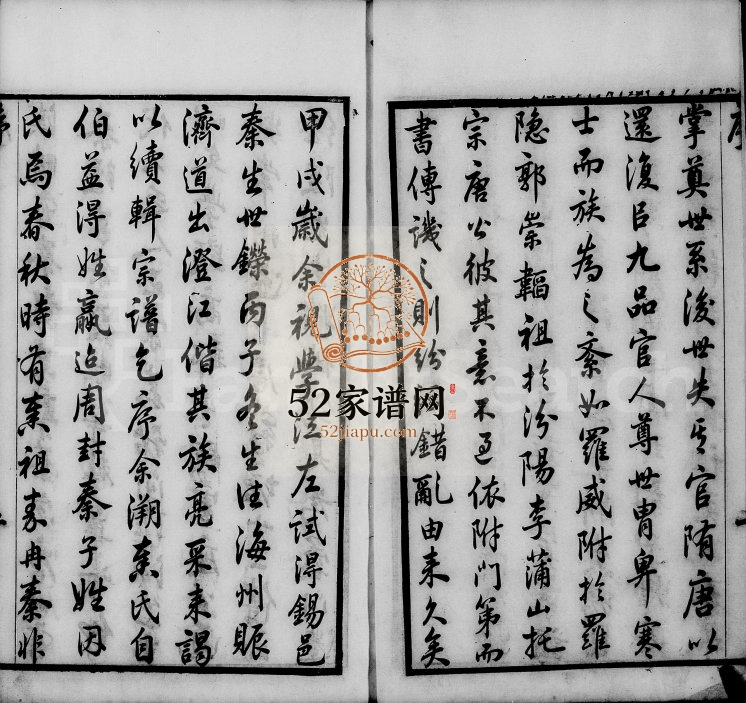 序
掌奠世系後世失其官隋唐以
還復臣九品官人尊世胄卑寒
士而族為之紊如羅威附於羅
隱郭崇韜祖於汾陽李蒲山托
宗唐公彼其意不過依附門第而
書傳譏之則紛錯亂由来久矣
甲戌歲余視學江左試得錫邑
秦生世鑅丙子冬生往海州賑
濟道出澄江偕其族亮采来謁
以續輯宗譜乞序余溯秦氏自
伯益得姓嬴迨周封秦子姓因
氏焉春秋時有秦祖秦冉秦非
52家谱网
52jiapu.com